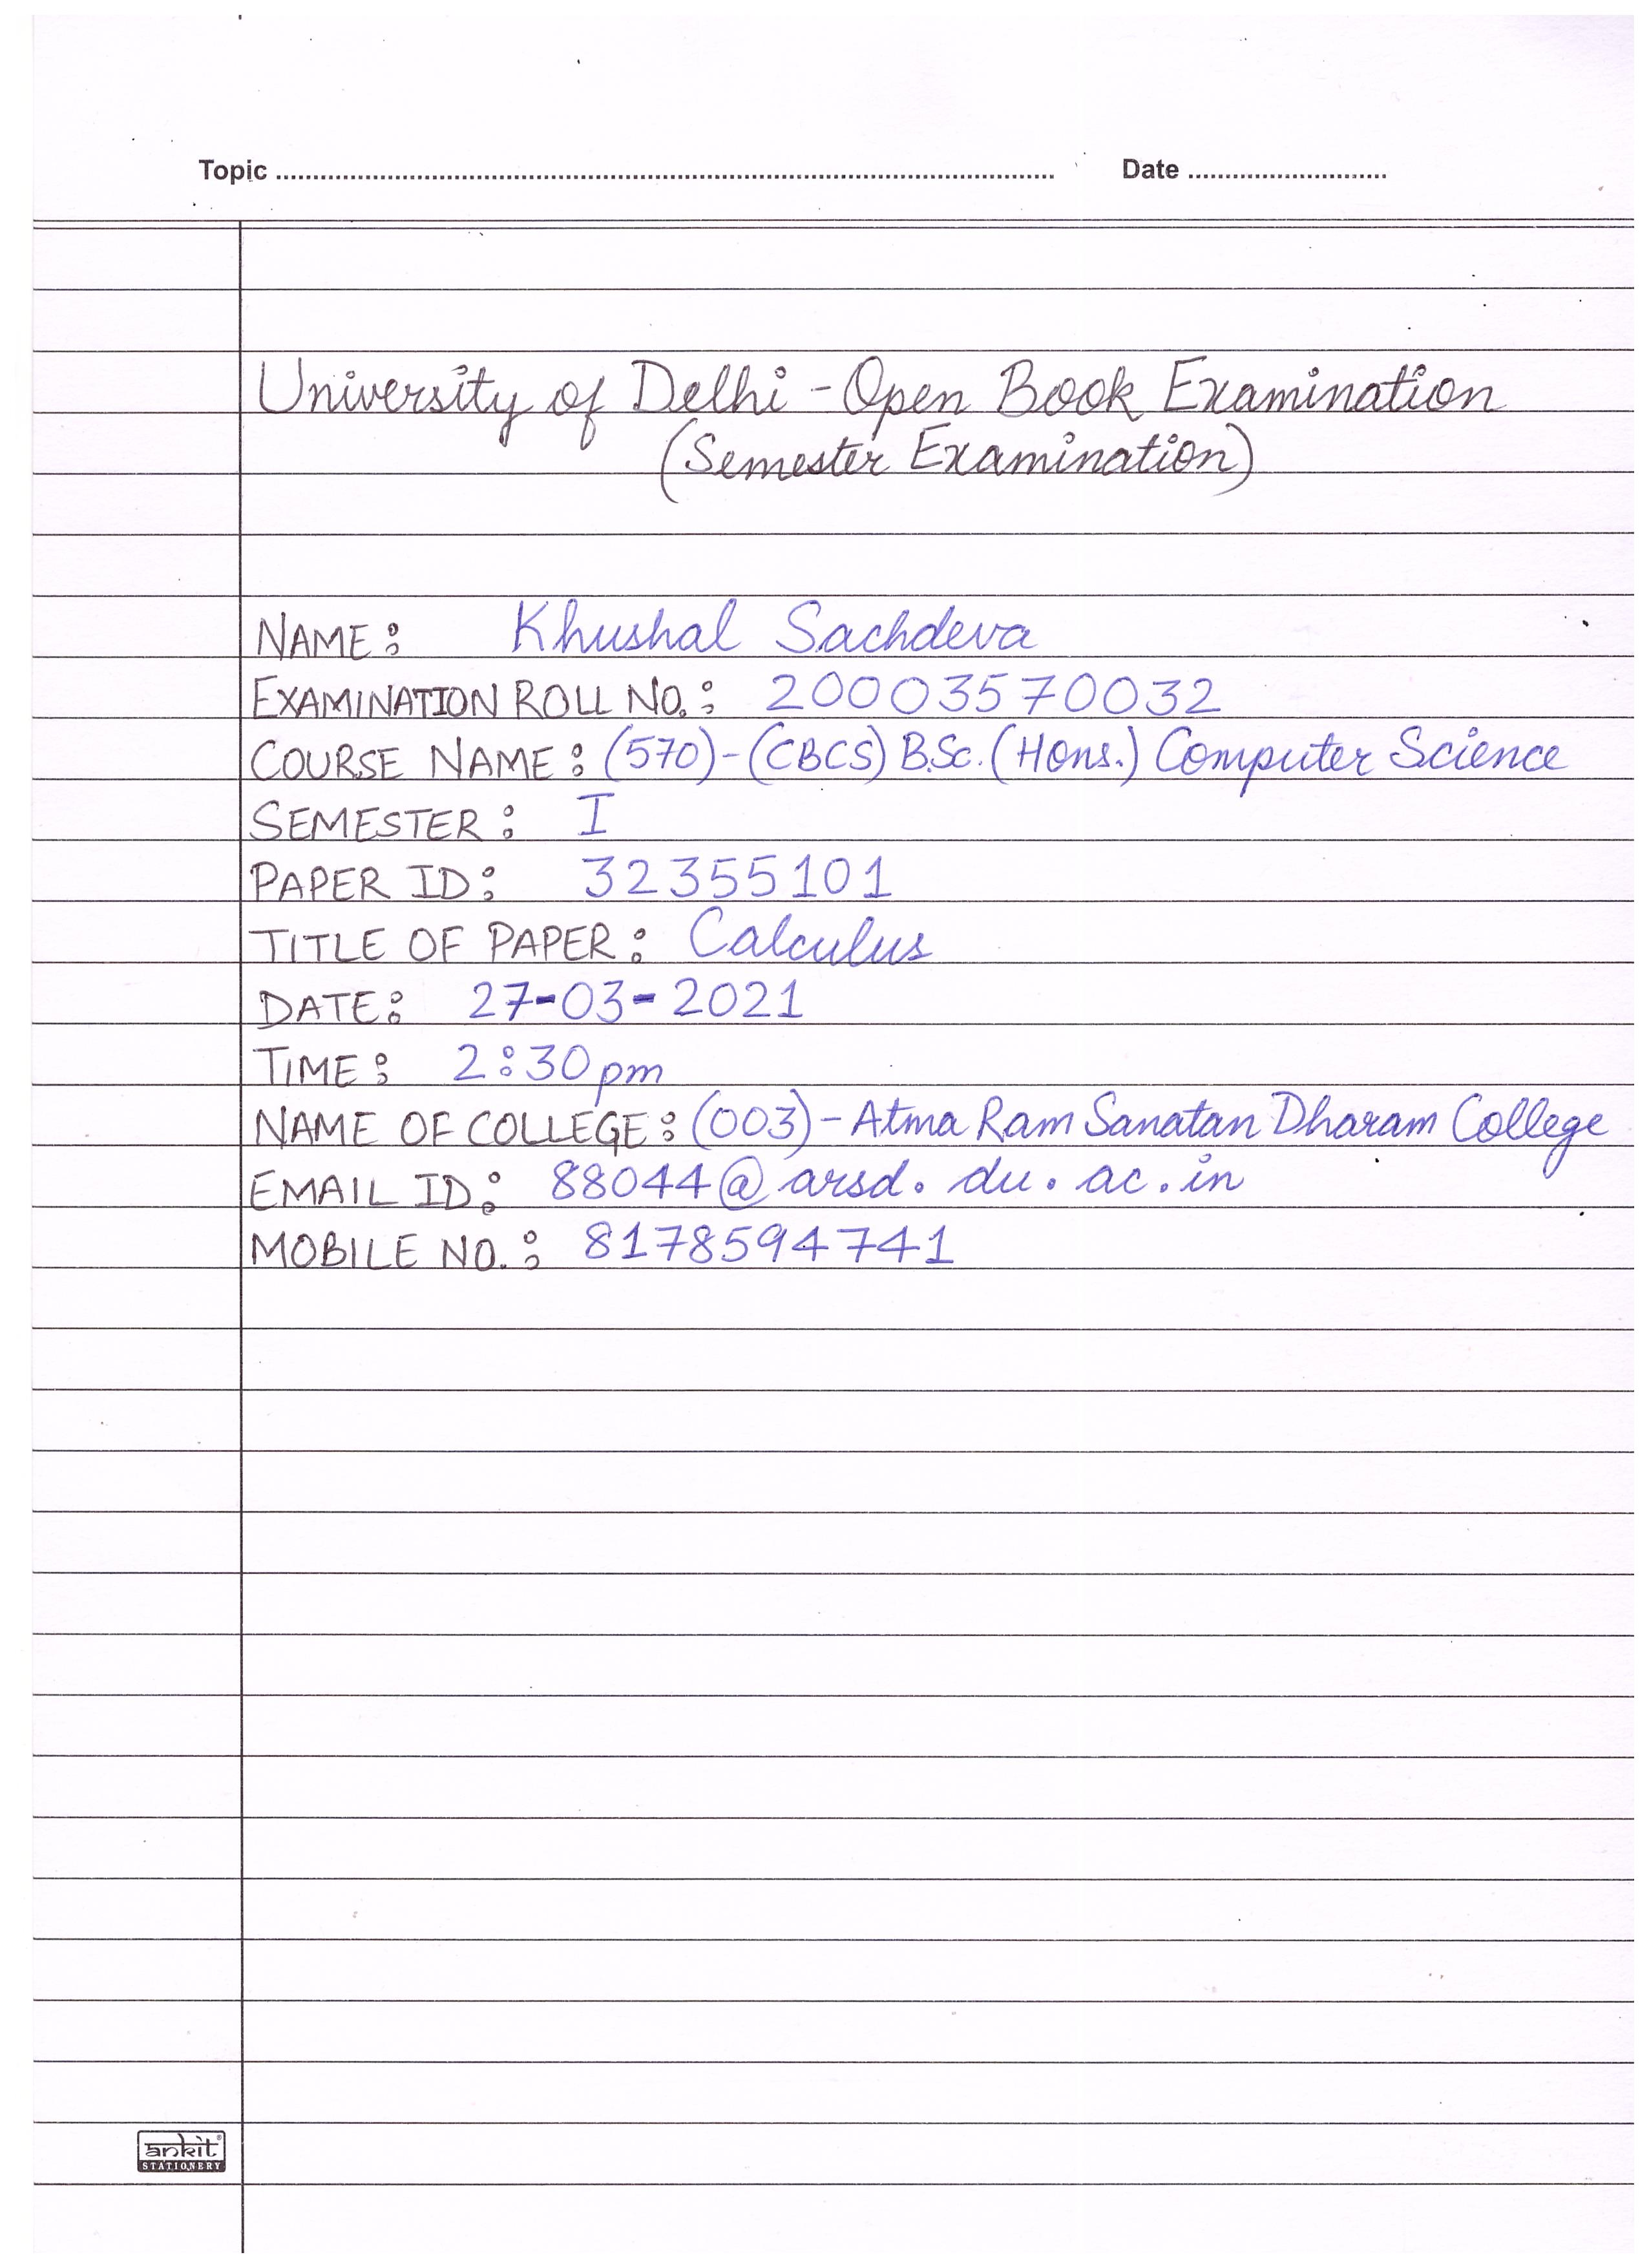 Topic ........................................................................................................ Date ...........................
University of Delhi - Open Book Examination
(Semester Examination)
NAME: Khushal Sachdeva
EXAMINATION ROLL NO.: 20003570032
COURSE NAME: (570)-(CBCS) B.Sc. (Hons.) Computer Science
SEMESTER: I
PAPER ID: 32355101
TITLE OF PAPER: Calculus
DATE: 27-03-2021
TIME: 2:30pm
NAME OF COLLEGE: (003)-Atma Ram Sanatan Dharam College
EMAIL ID: 88044@arsd.du.ac.in
MOBILE NO.: 8178594741
ankit
STATIONERY